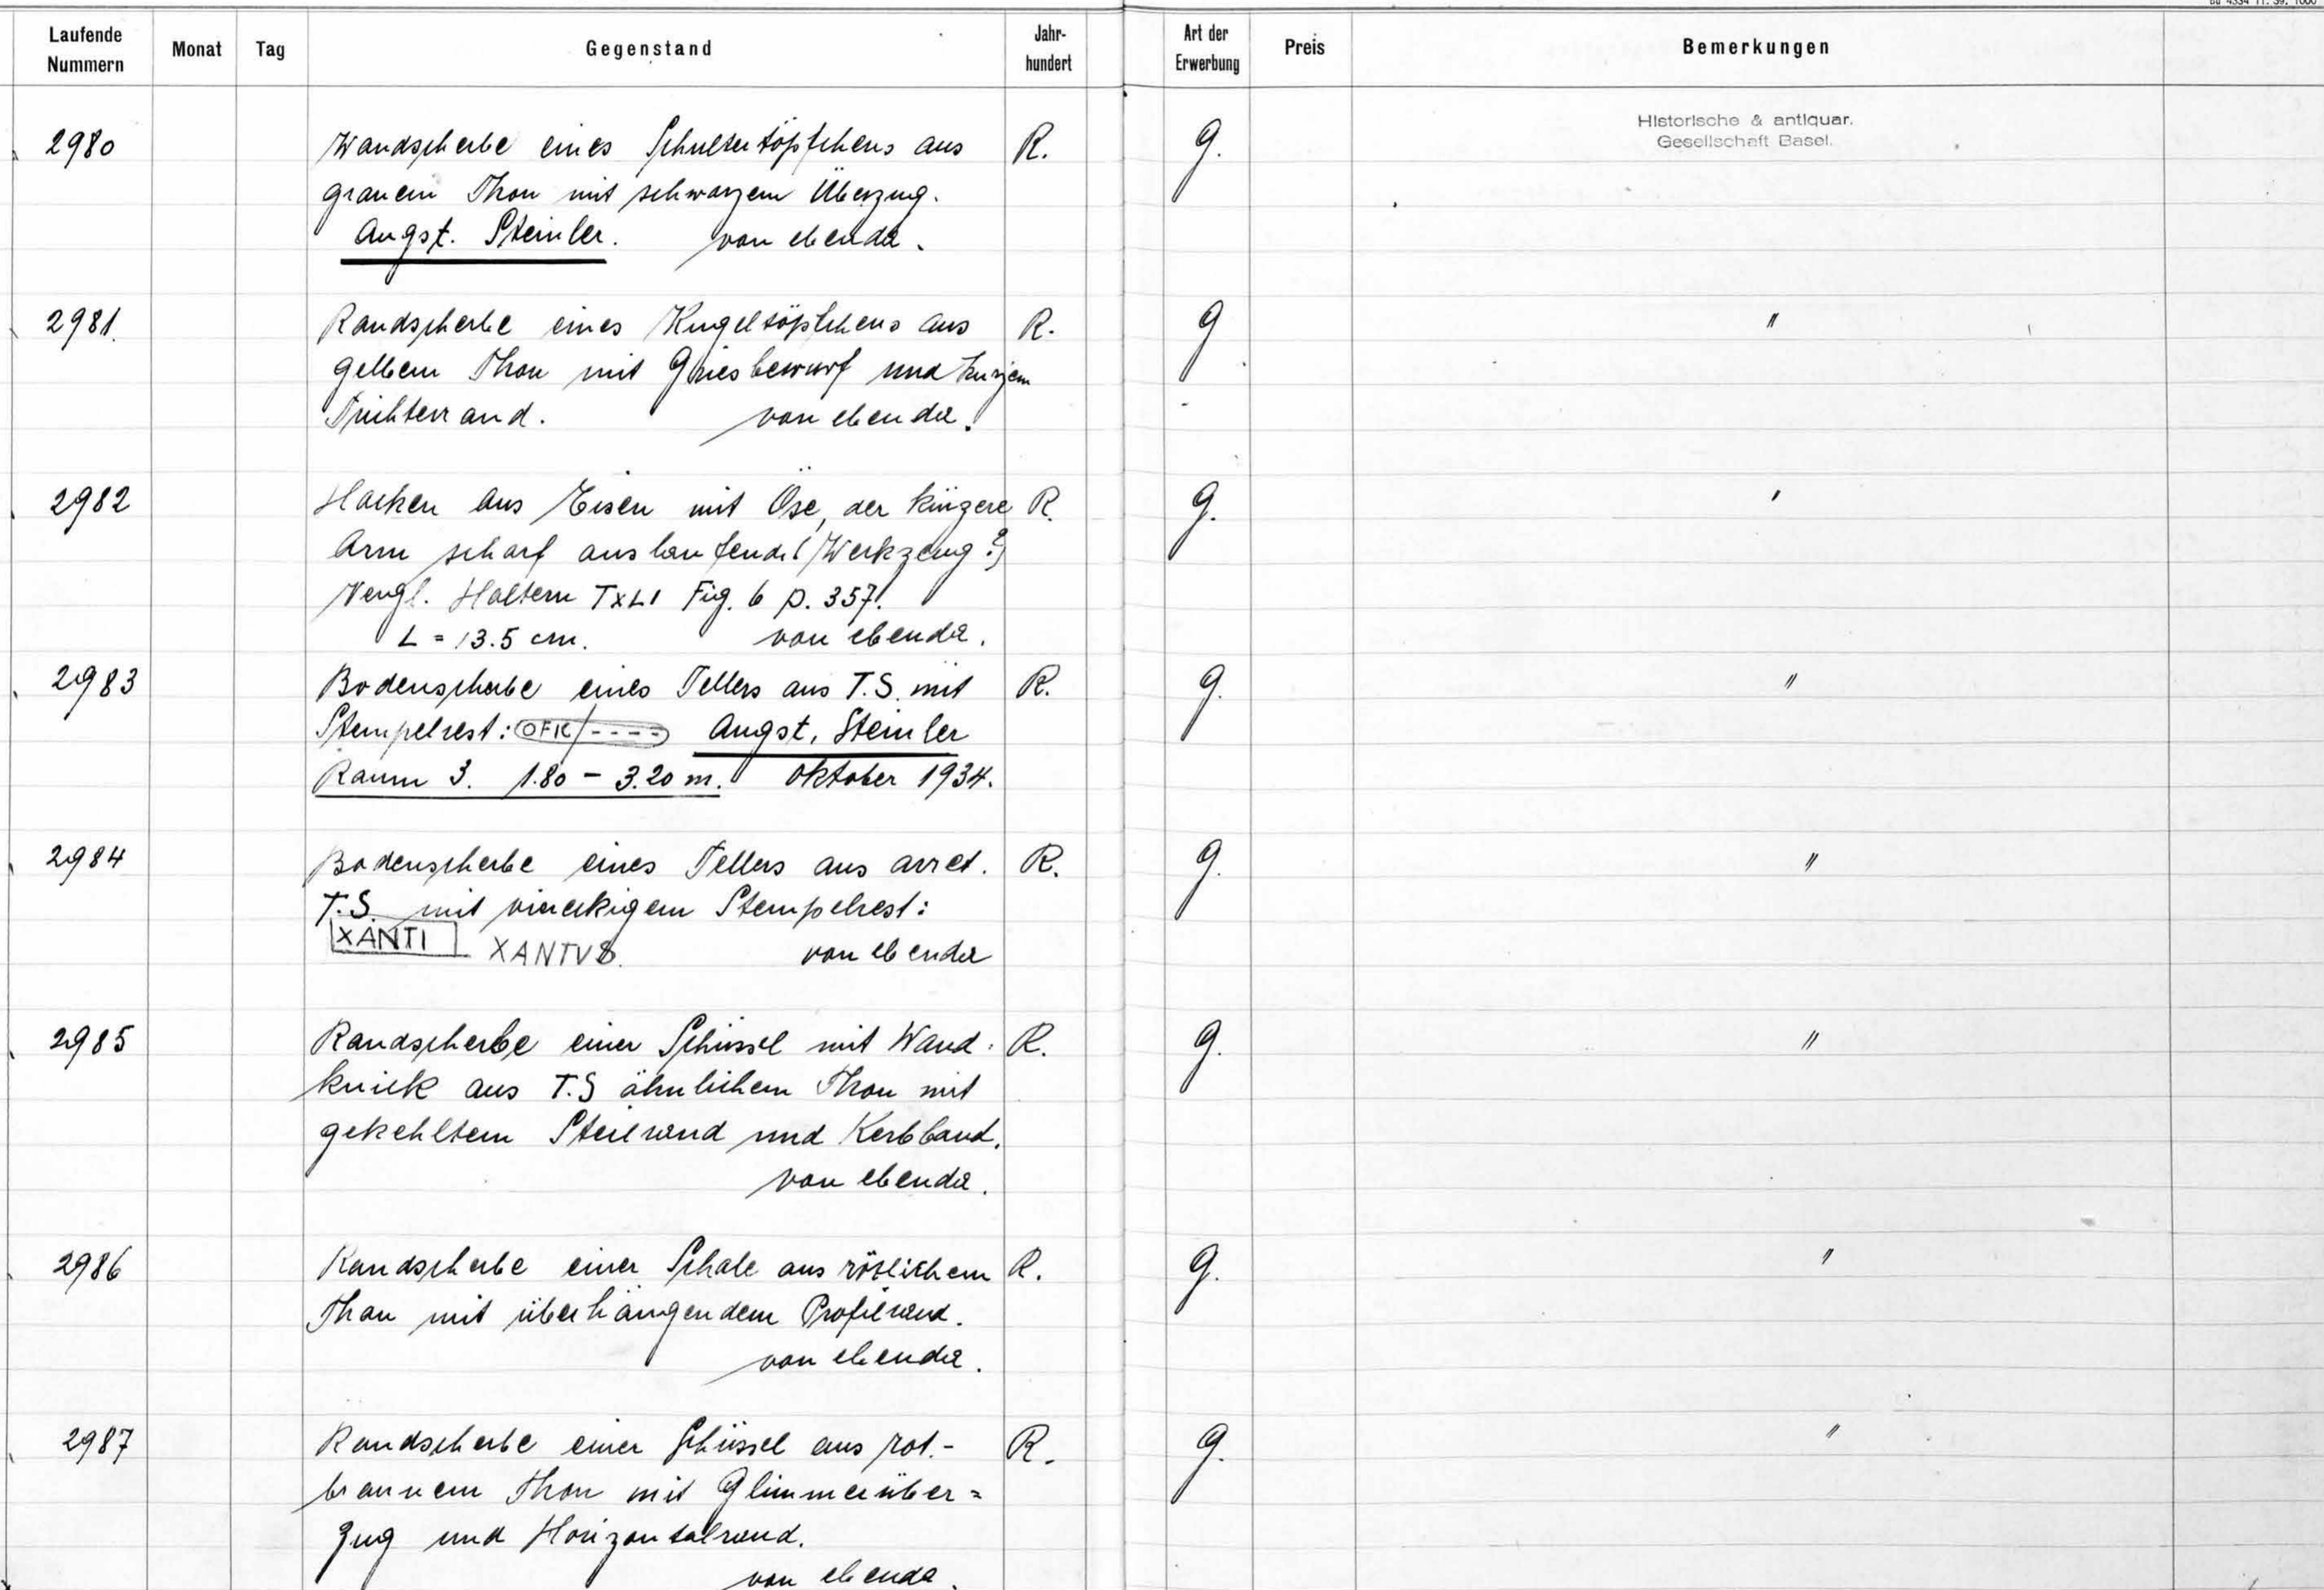 Laufende Nummern Monat Tag Gegenstand Jahr-hundert Art der Erwerbung Preis Bemerkungen
2980 Wandscherbe eines Schultertöpfchens aus R. G. Historische & antiquar.
Gesellschaft Basel.
grauem Thon mit schwarzem Überzug.
Augst. Steinler. von ebenda.
2981. Randscherbe eines Kugeltöpfchens aus R. G "
gelbem Thon mit Griesbewurf und kurzem
Trichterrand. von ebenda.
2982 Hacken aus Eisen mit Öse, der kürzere R. G. '
Arm scharf auslaufend. (Werkzeug?)
Vergl. Haltern TXLI Fig. 6 p. 357.
L = 13.5 cm. von ebenda.
2983 Bodenscherbe eines Tellers aus T.S. mit R. G. "
Stempelrest: OFIC/---- Augst, Steinler
Raum 3. 1.80 - 3.20 m. Oktober 1934.
2984 Bodenscherbe eines Tellers aus arret. R. G. "
T.S. mit viereckigem Stempelrest:
XANTI XANTVS. von ebenda
2985 Randscherbe einer Schüssel mit Wand- R. G. "
knick aus T.S ähnlichem Thon mit
gekehltem Steilrand und Kerbband.
von ebenda.
2986 Randscherbe einer Schale aus rötlichem R. G. "
Thon mit überhängendem Profilrand.
von ebenda.
2987 Randscherbe einer Schüssel aus rot- R. G. "
braunem Thon mit Glimmerüber=
zug und Horizontalrand.
von ebenda.